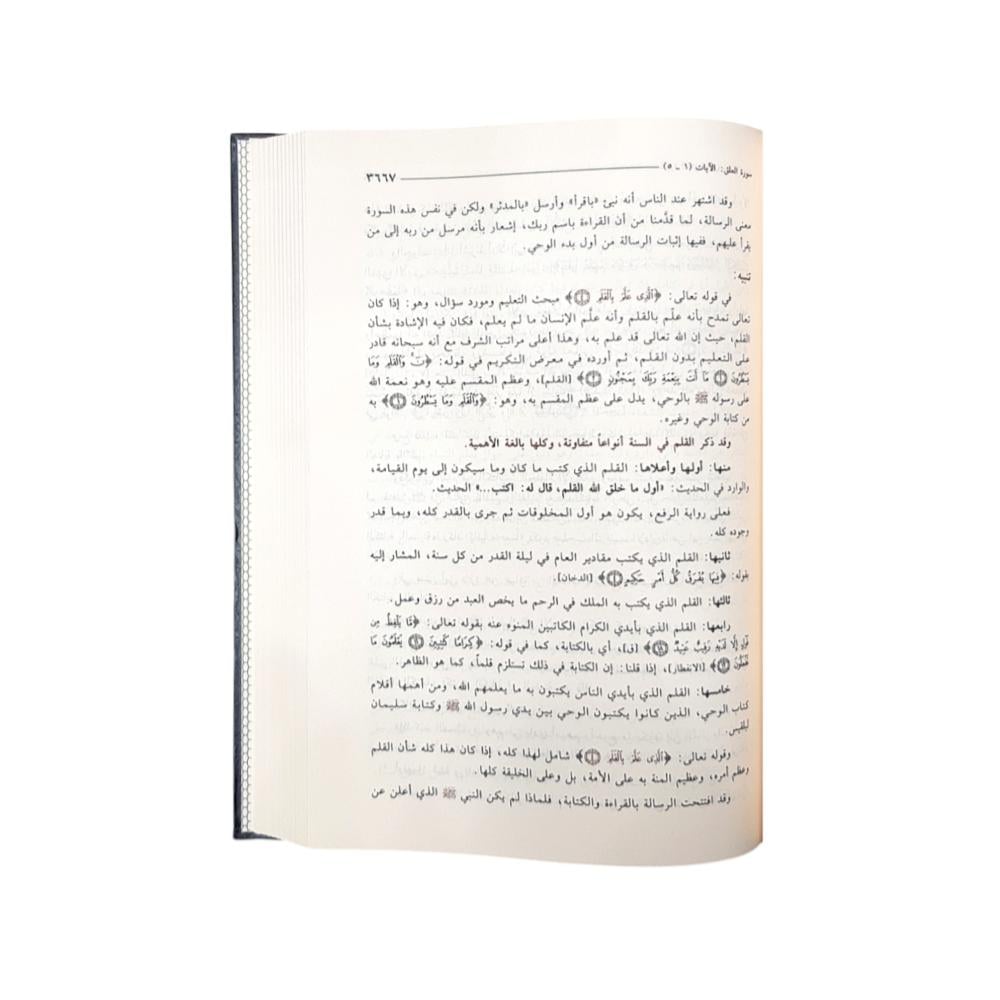 سورة العلق: الآيات (١ ـ ٥) ٣٦٦٧
وقد اشتهر عند الناس أنه نبئ «باقرأ» وأرسل «بالمدثر» ولكن في نفس هذه السورة
معنى الرسالة، لما قدَّمنا من أن القراءة باسم ربك، إشعار بأنه مرسل من ربه إلى من
يقرأ عليهم، ففيها إثبات الرسالة من أول بدء الوحي.
تنبيه:
في قوله تعالى: ﴿ٱلَّذِى عَلَّمَ بِٱلْقَلَمِ﴾ مبحث التعليم ومورد سؤال، وهو: إذا كان
تعالى تمدح بأنه علَّم بالقلم وأنه علَّم الإنسان ما لم يعلم، فكان فيه الإشادة بشأن
القلم، حيث إن الله تعالى قد علم به، وهذا أعلى مراتب الشرف مع أنه سبحانه قادر
على التعليم بدون القلم، ثم أورده في معرض التكريم في قوله: ﴿نٓ وَٱلْقَلَمِ وَمَا
يَسْطُرُونَ ١ مَآ أَنتَ بِنِعْمَةِ رَبِّكَ بِمَجْنُونٍ﴾ [القلم]، وعظم المقسم عليه وهو نعمة الله
على رسوله ﷺ بالوحي، يدل على عظم المقسم به، وهو: ﴿وَٱلْقَلَمِ وَمَا يَسْطُرُونَ ١﴾ به
من كتابة الوحي وغيره.
وقد ذكر القلم في السنة أنواعاً متفاوتة، وكلها بالغة الأهمية.
منها: أولها وأعلاها: القلم الذي كتب ما كان وما سيكون إلى يوم القيامة،
والوارد في الحديث: «أول ما خلق الله القلم، قال له: اكتب...» الحديث.
فعلى رواية الرفع، يكون هو أول المخلوقات ثم جرى بالقدر كله، وبما قدر
وجوده كله.
ثانيها: القلم الذي يكتب مقادير العام في ليلة القدر من كل سنة، المشار إليه
بقوله: ﴿فِيهَا يُفْرَقُ كُلُّ أَمْرٍ حَكِيمٍ﴾ [الدخان].
ثالثها: القلم الذي يكتب به الملك في الرحم ما يخص العبد من رزق وعمل.
رابعها: القلم الذي بأيدي الكرام الكاتبين المنوه عنه بقوله تعالى: ﴿مَّا يَلْفِظُ مِن
قَوْلٍ إِلَّا لَدَيْهِ رَقِيبٌ عَتِيدٌ﴾ [ق]، أي بالكتابة، كما في قوله: ﴿كِرَامًا كَٰتِبِينَ يَعْلَمُونَ مَا
تَفْعَلُونَ﴾ [الانفطار]، إذا قلنا: إن الكتابة في ذلك تستلزم قلماً، كما هو الظاهر.
خامسها: القلم الذي بأيدي الناس يكتبون به ما يعلمهم الله، ومن أهمها أقلام
كتاب الوحي، الذين كانوا يكتبون الوحي بين يدي رسول الله ﷺ وكتابة سليمان
لبلقيس.
وقوله تعالى: ﴿ٱلَّذِى عَلَّمَ بِٱلْقَلَمِ﴾ شامل لهذا كله، إذا كان هذا كله شأن القلم
وعظم أمره، وعظيم المنة به على الأمة، بل وعلى الخليقة كلها.
وقد افتتحت الرسالة بالقراءة والكتابة، فلماذا لم يكن النبي ﷺ الذي أعلن عن